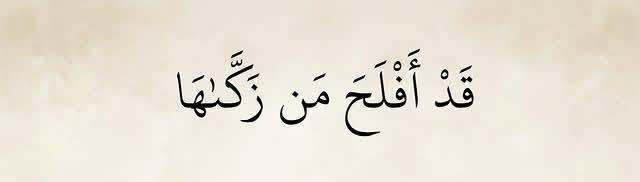 قَدْ أَفْلَحَ مَن زَكَّىٰهَا